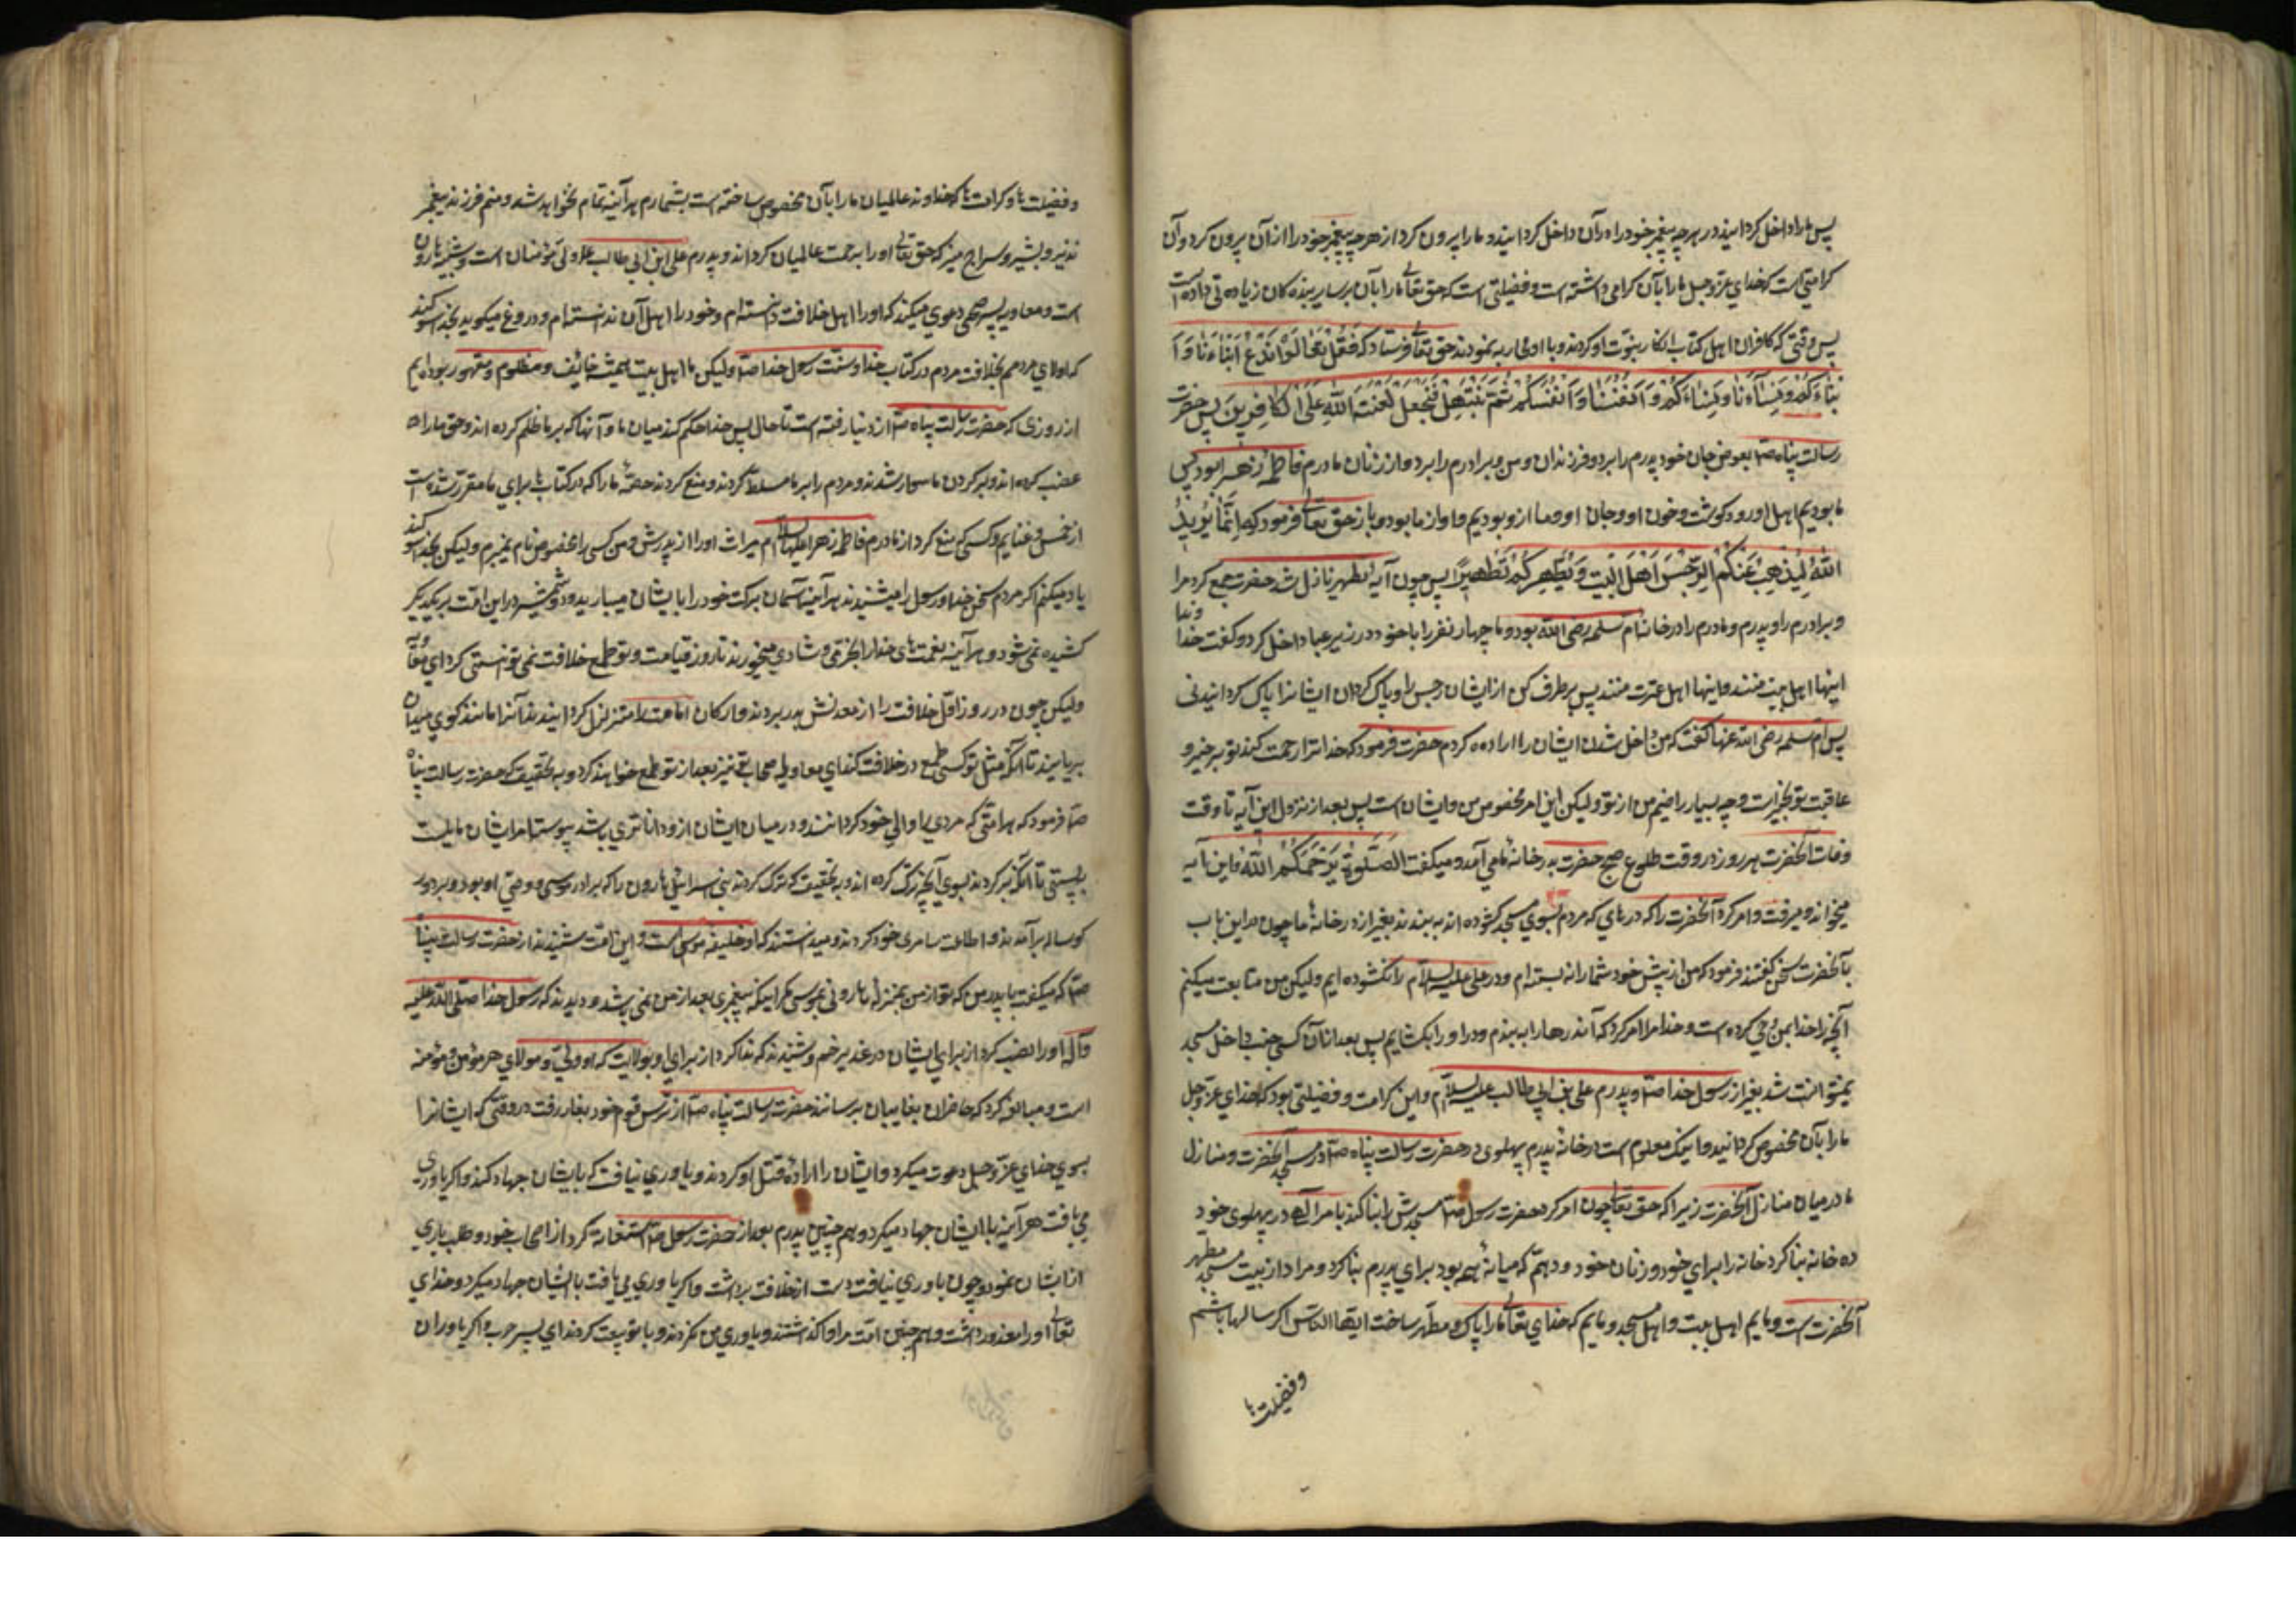 پس ما را داخل کردانیند در هر چه پیغمبر خود را در آن داخل کردانیند و ما را بیرون کرد از هر چه پیغمبر خود را از آن بیرون کرد و آن
کرامتی است که خدای عزّ و جل ما را بآن کرامی داشته است و فضیلتی است که حق تعالی ما را بآن بر سایر بنده کان زیاده تی داده است
پس وقتی که کافران اهل کتاب انکار نبوت او کردند و با او محاربه نمودند حق تعالی فرستاد که فَقُلْ تَعَالَوْا نَدْعُ اَبْنَاءَنَا وَ اَ
بْنَاءَكُمْ وَنِسَاءَنَا وَنِسَاءَكُمْ وَ اَنْفُسَنَا وَ اَنْفُسَكُمْ ثُمَّ نَبْتَهِلْ فَنَجْعَلْ لَعْنَتَ اللّٰهِ عَلَى الْكَافِرِينَ پس حضرت
رسالت پناه صلّا بعوض جان خود پدرم را برد و فرزندان و من و برادرم را برد و از زنان مادرم فاطمه زهرا بود پس
ما بودیم اهل او و کوشت و خون او و جان او و ما ازو بودیم و او از ما بود و باز حق تعالی فرمود که اِنَّمَا يُرِيدُ
اللّٰهُ لِيُذْهِبَ عَنْكُمُ الرِّجْسَ اَهْلَ الْبَيْتِ وَيُطَهِّرَكُمْ تَطْهِيرًا پس چون آیهٔ تطهیر نازل شد حضرت جمع کرد مرا
و برادرم را و پدرم و مادرم را در خانه ام سلمه رضی الله بود و ما چهار نفر را با خود در زیر عبا داخل کرد و گفت خداوندا
اینها اهل بیت منند و اینها اهل عترت منند پس برطرف کن از ایشان رجس را و پاک کردان ایشانرا پاک کردانیدنی
پس ام سلمه رضی الله عنها کفت که من داخل شدن ایشان را اراده کردم حضرت فرمود که خدا ترا رحمت کند تو بر خیر و
عاقبت تو بخیر است و چه بسیار راضیم من از تو ولیکن این امر مخصوص من و ایشان است پس بعد از نزول این آیه تا وقت
وفات آنحضرت هر روز در وقت طلوع صبح حضرت بدر خانهٔ ما می آمد و میکفت الصَّلٰوةَ يَرْحَمُكُمُ اللّٰهُ و این آیه
میخواند و میرفت و امر کرد آنحضرت را که درهای که مردم بسوی مسجد کشوده اند به بندند بغیر از در خانهٔ ما چون در این باب
بآنحضرت سخن کفتند فرمود که من از پیش خود شما را نه بسته ام و در علی علیه السلام را نکشوده ایم ولیکن من متابعت میکنم
آنچه را خدا بمن وحی کرده است و خدا مرا امر کرد که آن درها را به بندم و در او را بکشایم پس بعد از آن کسی جنب داخل مسجد
نمیتوانست شد بغیر از رسول خدا صلّا و پدرم علی بن ابی طالب علیه السلام و این کرامت و فضیلتی بود که خدای عزّ و جل
ما را بآن مخصوص کردانید و اینک معلوم است در خانهٔ پدرم پهلوی در حضرت رسالت پناه صلّا در مسجد آنحضرت و منازل
ما در میان منازل آنحضرت زیرا که حق تعالی چون امر کرد حضرت رسول صلّا مسجدش را بنا کند بامر الهی در پهلوی خود
ده خانه بنا کرد خانه را برای خود و زنان خود و دهم که میانهٔ همه بود برای پدرم بنا کرد و مراد از بیت مسجد مطهر
آنحضرت است و مایم اهل بیت و اهل مسجد و مایم که خدای تعالی ما را پاک و مطهر ساخت ایها الناس اکر سالها باشم
وفضیلت ها
و فضیلت ها و کرامت ها که خداوند عالمیان ما را بآن مخصوص ساخته است بشمارم هر آینه تمام نخواهد شد و منم فرزند پیغمبر
نذیر و بشیر و سراج منیر که حق تعالی او را رحمت عالمیان کرداند و پدرم علی ابن ابی طالب علا ولی مؤمنان است و شبیه هارون
است و معاویه پسر صخر دعوی میکند که او را اهل خلافت دانسته ام و خود را اهل آن ندانسته ام و دروغ میکوید بخدا سوکند
که اولای مردمم بخلافت مردم در کتاب خدا و سنت رسول خدا صلّا ولیکن ما اهل بیت همیشه خائف و مظلوم و مقهور بوده ایم
از روزی که حضرت رسالت پناه صلّا از دنیا رفته است تا حال پس خدا حکم کند میان ما و آنها که بر ما ظلم کرده اند و حق ما را
غصب کرده اند و بر کردن ما سوار شدند و مردم را بر ما مسلط کردند و منع کردند حصهٔ ما را که در کتاب ها برای ما مقرر شده است
از خمس و غنایم و کسی که منع کرد از مادرم فاطمه زهرا علیها السلام میراث او را از پدرش و من کسی را بخصوص نام نمیبرم ولیکن بخدا سوکند
یاد میکنم اکر مردم سخن خدا و رسول را میشنیدند هر آینه آسمان برکت خود را با ایشان میبارید و دو شمشیر در این امت بر یکدیکر
کشیده نمی شود و هر آینه نعمت های خدا را بخرمی و شادی میخورند تا روز قیامت و تو طمع خلافت نمی توانستی کرد ای معویه
ولیکن چون در روز اول خلافت را از معدنش بدر بردند و ارکان امامت را متزلزل کردانیدند آنرا مانند کوی میدان
بربایند تا آنکه مثل تو کسی طمع در خلافت کند ای معاویه صحابه تو نیز بعد از تو طمع خواهند کرد و به تحقیق که حضرت رسالت پناه
صلّا فرمود که هر امتی که مردی را والی خود کردانند و در میان ایشان ازو داناتری باشد پیوسته امر ایشان مایلست
به پستی تا آنکه بر کردند بسوی آنچه ترک کرده اند و به تحقیق که ترک کردند بنی اسرائیل هارون را که برادر موسی و وصی او بود و بر دور
کوساله بر آمدند و اطاعت سامری خود کردند و میدانستند که او خلیفه موسی است و این امت شنیدند از حضرت رسالت پناه
صلّا که میکفت با پدر من که تو از من بمنزله هارونی بموسی مکر اینکه پیغمبری بعد از من نمی باشد و دیدند که رسول خدا صلی الله علیه
و آله او را نصب کرد از برای ایشان در غدیر خم و شنیدند که ندا کرد از برای او بولایت که او ولی و مولای هر مؤمن و مؤمنه
است و مبالغه کرد که حاضران بغایبان برسانند حضرت رسالت پناه صلّا از ترس قوم خود بغار رفت در وقتی که ایشانرا
بسوی خدای عزّ و جل دعوت میکرد و ایشان را ارادهٔ قتل او کردند و یاوری نیافت که بایشان جهاد کند و اکر یاوری
می یافت هر آینه با ایشان جهاد میکرد و هم چنین پدرم بعد از حضرت رسول صلّا استغاثه کرد از اصحاب خود و طلب یاری
از ایشان نمود و چون یاوری نیافت دست از خلافت برداشت و اکر یاوری می یافت بایشان جهاد میکرد و خدای
تعالی او را معذور داشت و هم چنین امت مرا واکذاشتند و یاوری من نکردند و با تو بیعت کردند ای پسر حرب و اکر یاوران